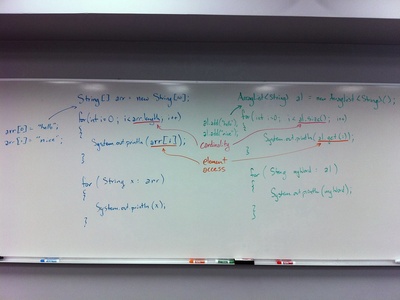 String[] arr = new String[10];
for(int i=0; i<arr.length; i++)
{
System.out.println(arr[i]);
}
for (String x : arr)
{
System.out.println(x);
}
arr[0] = "hello";
arr[1] = "nice"
cardinality
element
access
ArrayList<String> al = new ArrayList<String>();
al.add("hello");
al.add("nice");
for(int i=0; i<al.size(); i++)
{
System.out.println(al.get(i));
}
for (String myWord : al)
{
System.out.println(myWord);
}